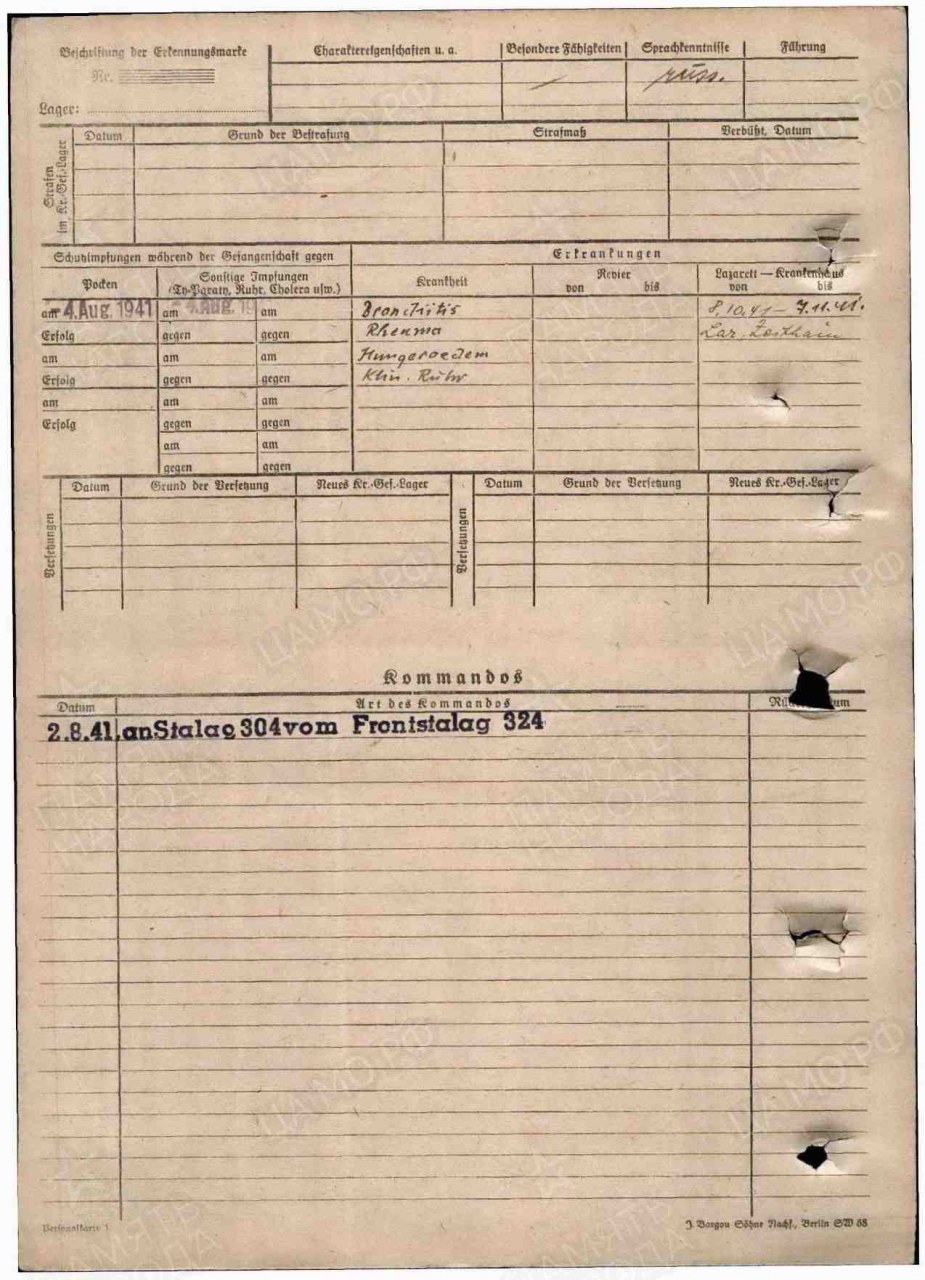 Beschriftung der Erkennungsmarke
Nr.
Lager:
Charaktereigenschaften u. a. Besondere Fähigkeiten Sprachkenntnisse Führung
russ.
Strafen im Kr.-Gef.-Lager
Datum Grund der Bestrafung Strafmaß Verbüßt, Datum
Schutzimpfungen während der Gefangenschaft gegen Erkrankungen
Pocken Sonstige Impfungen (Ty-Paraty, Ruhr, Cholera usw.) Krankheit Revier von bis Lazarett — Krankenhaus von bis
am 4. Aug. 1941 am 4. Aug. 19 am Bronchitis 8.10.41 — 7.11.41.
Erfolg gegen gegen Rheuma Lar. Zeithain
am am am Hungeroedem
Erfolg gegen gegen Klin. Ruhr
am am am
Erfolg gegen gegen
am am
gegen gegen
Versetzungen
Datum Grund der Versetzung Neues Kr.-Gef.-Lager
Versetzungen
Datum Grund der Versetzung Neues Kr.-Gef.-Lager
Kommandos
Datum Art des Kommandos
2.8.41. an Stalag 304 vom Frontstalag 324
Personalkarte 1
J. Bargou Söhne Nachf., Berlin SW 68
ЦАМО РФ
ПАМЯТЬ НАРОДА